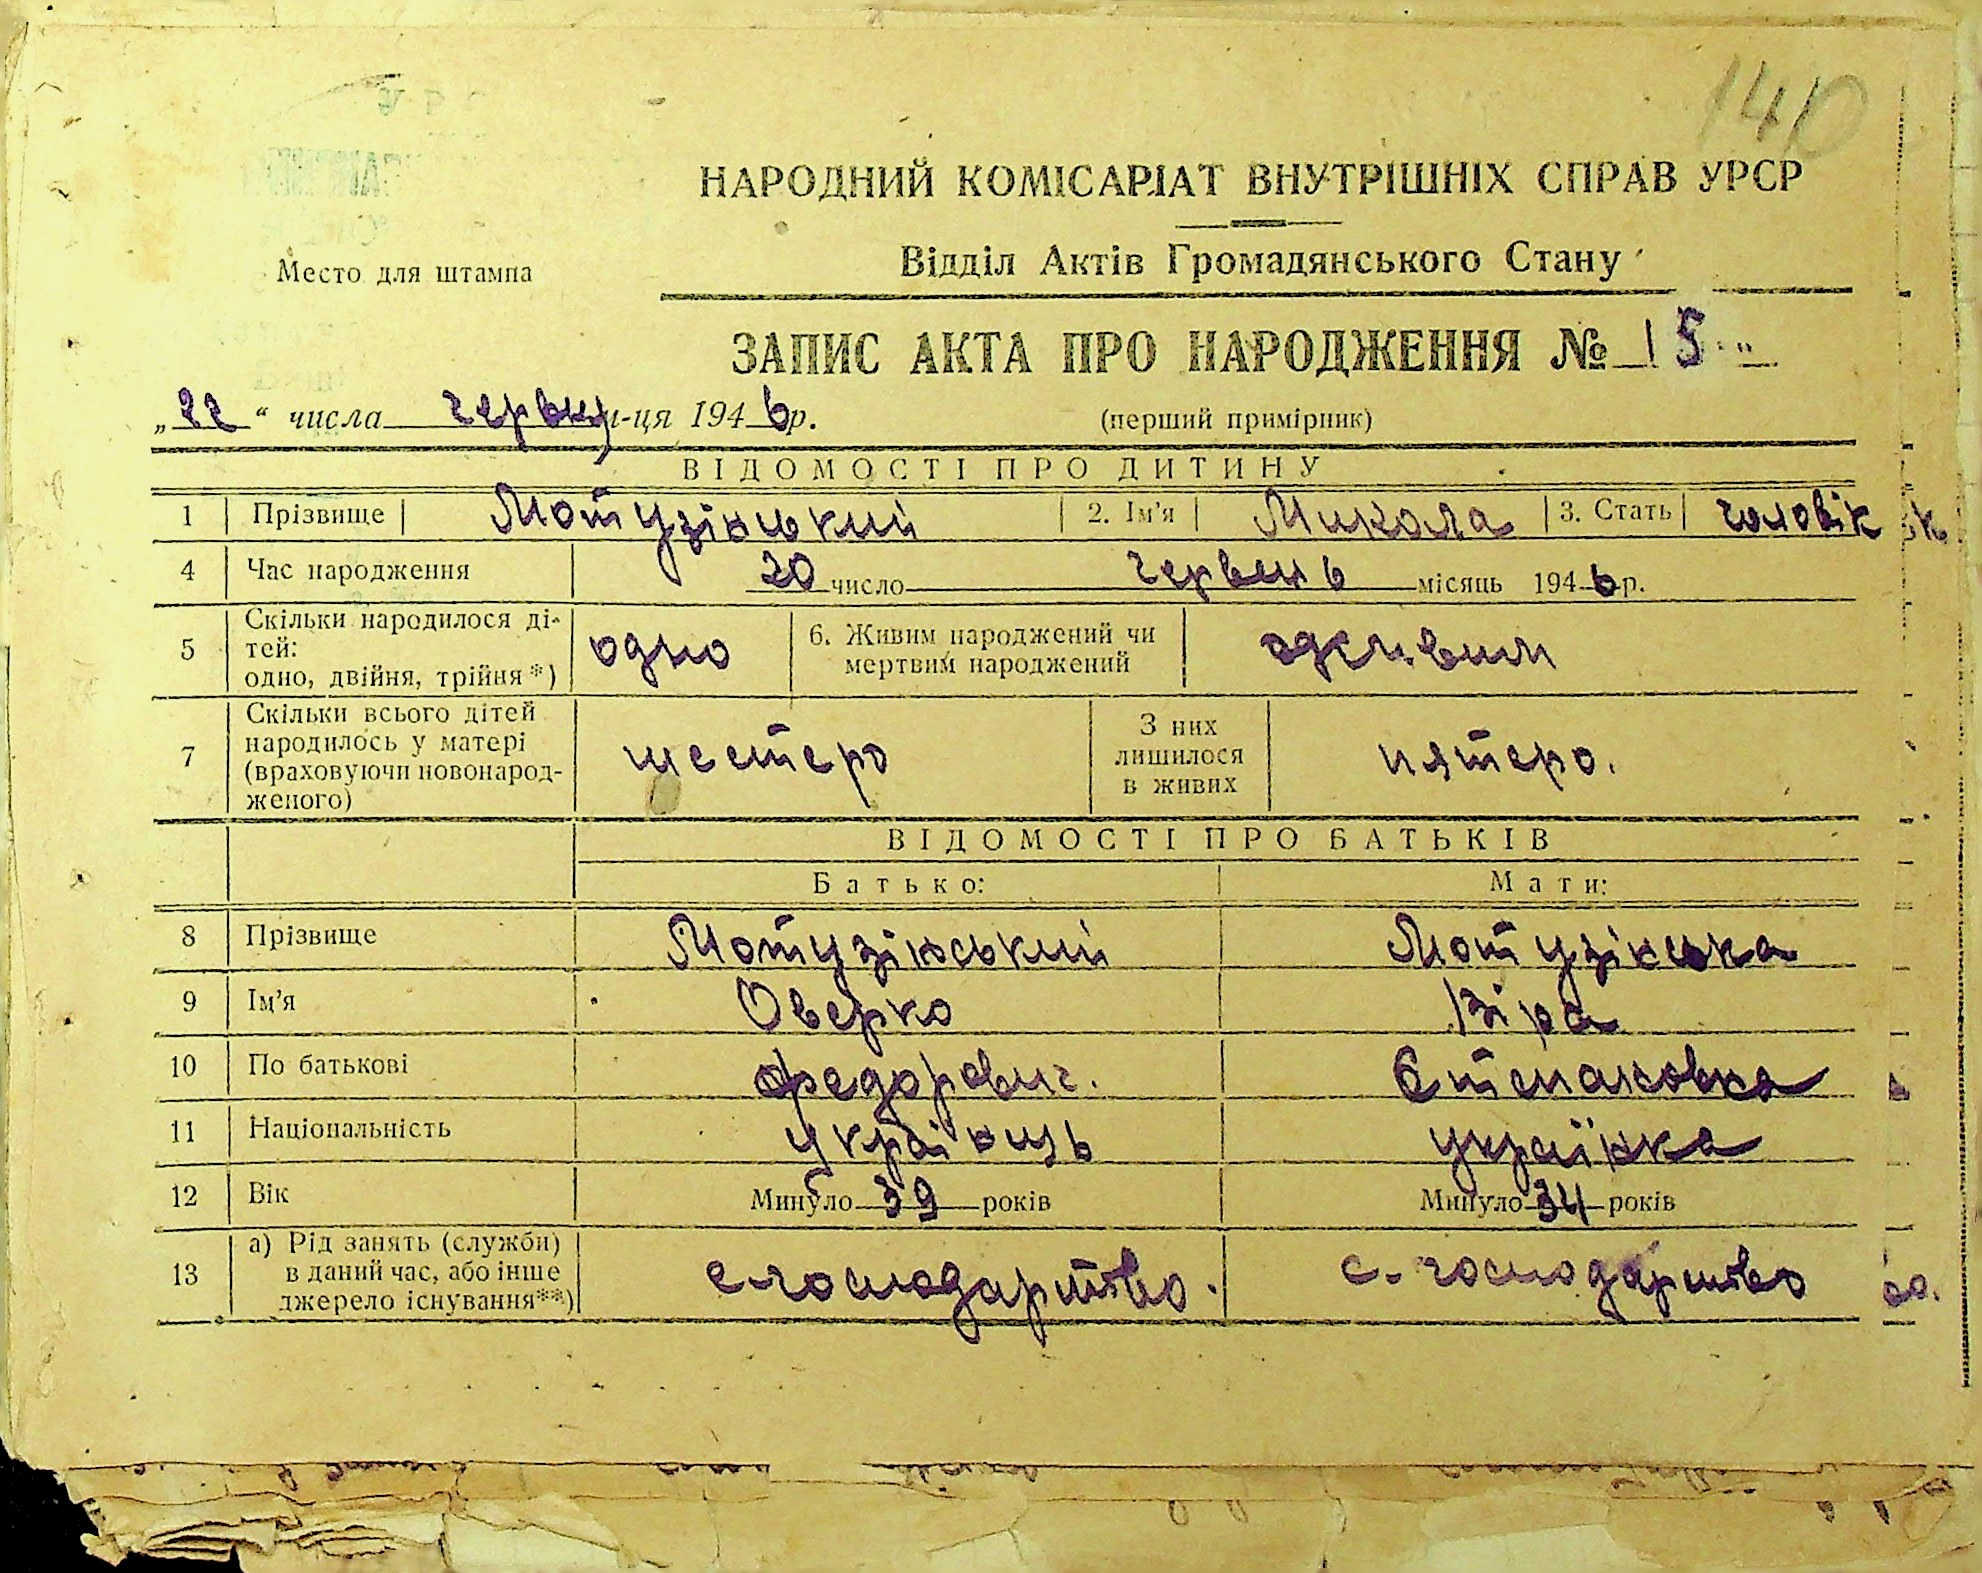 140
НАРОДНИЙ КОМІСАРІАТ ВНУТРІШНІХ СПРАВ УРСР
Место для штампа
Відділ Актів Громадянського Стану
ЗАПИС АКТА ПРО НАРОДЖЕННЯ № 15
„22“ числа червня м-ця 1946 р. (перший примірник)
ВІДОМОСТІ ПРО ДИТИНУ
1 Прізвище Мотузінський 2. Ім'я Микола 3. Стать чоловік
4 Час народження 20 число червень місяць 1946 р.
5 Скільки народилося ді-
тей:
одно, двійня, трійня *) одно 6. Живим народжений чи
мертвим народжений
7 Скільки всього дітей
народилось у матері
(враховуючи новонарод-
женого) шестеро З них
лишилося
в живих пятеро.
ВІДОМОСТІ ПРО БАТЬКІВ
Батько: Мати:
8 Прізвище Мотузінський Мотузінська
9 Ім'я Оверко Віра
10 По батькові Федорович. Степановна
11 Національність українць українка
12 Вік Минуло 39 років Минуло 34 років
13 а) Рід занять (служби)
в даний час, або інше
джерело існування**) с-господарство. с-господарство